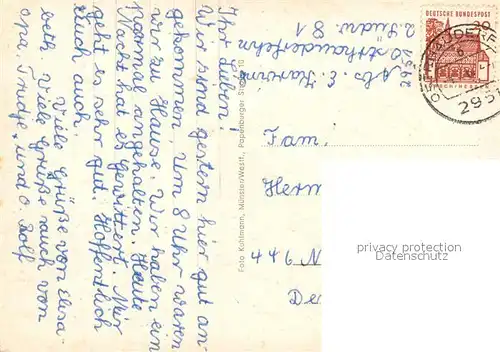 Ihr Lieben!
Wir sind gestern hier gut an-
gekommen. Um 8 Uhr waren
wir zu Hause. Wir haben ein
mal angehalten. Heute
Nacht hat es gewittert. Mir
geht es sehr gut. Hoffentlich
Euch auch.
Viele Grüße von Elisa-
beth. Viele Grüße auch von
Opa, Trudje, und O. Rolf
Foto Kuhlmann, Münster/Westf., Papenburger Straße 10
Abs. E.
2. Südw. 81
DEUTSCHE BUNDESPOST
20
295
Fam.
Herm
446 N
De
privacy protection
watermark